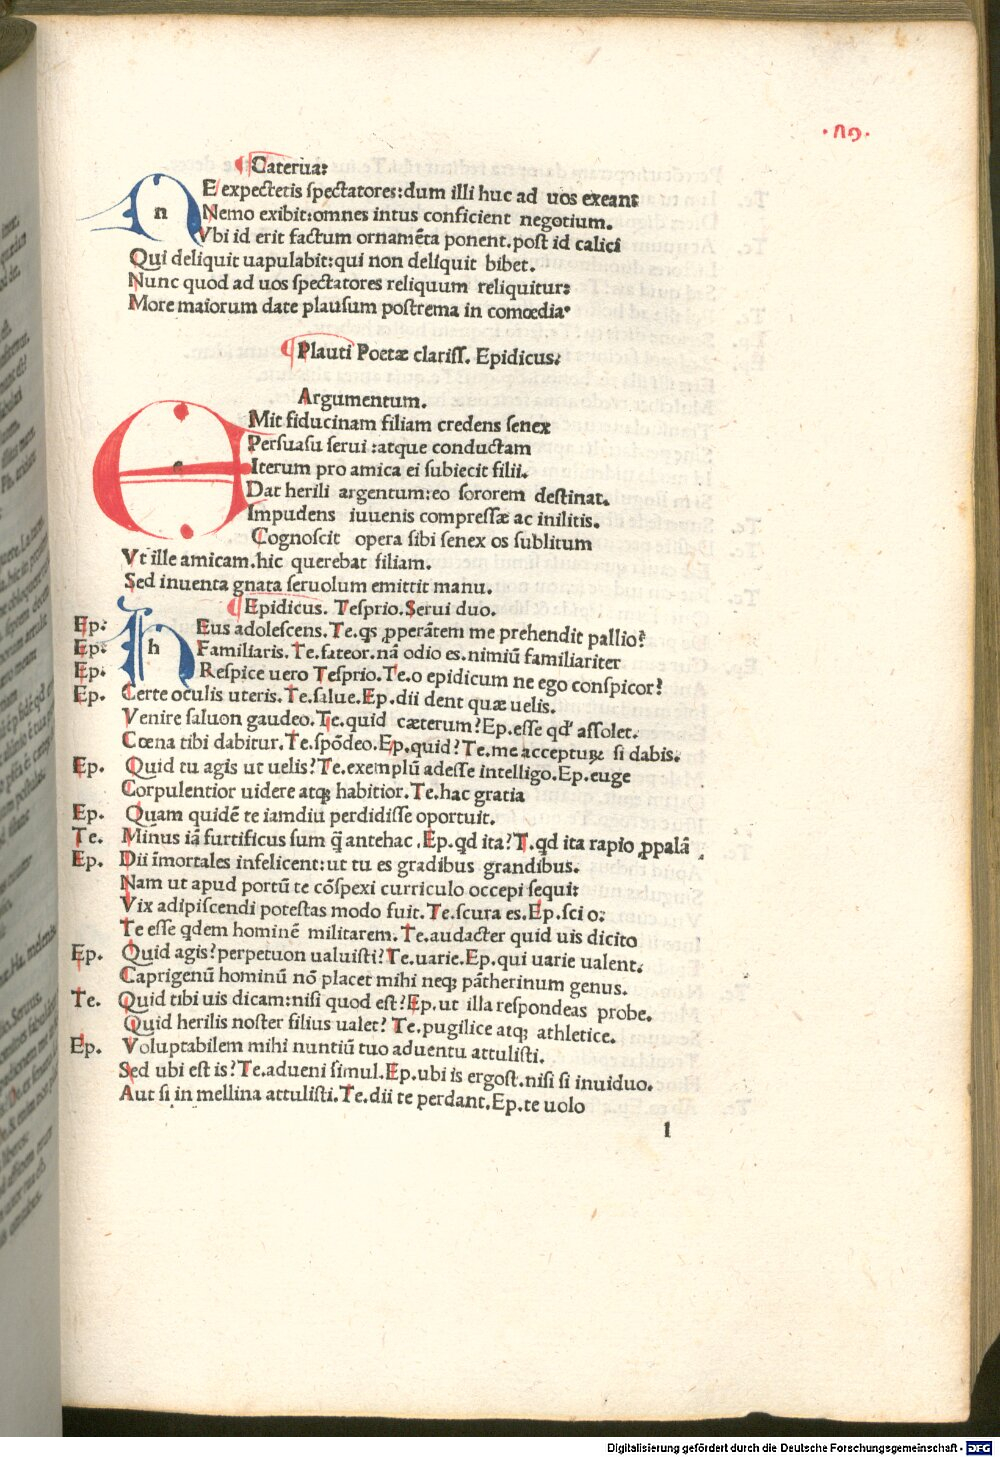 ·89·
¶ Caterua:
nE expectetis spectatores:dum illi huc ad uos exeant
Nemo exibit:omnes intus conficient negotium.
Vbi id erit factum ornamēta ponent.post id calici
Qui deliquit uapulabit:qui non deliquit bibet.
Nunc quod ad uos spectatores reliquum reliquitur:
More maiorum date plausum postrema in comœdia.
¶ Plauti Poetæ clariss. Epidicus:
Argumentum.
eMit fiducinam filiam credens senex
Persuasu serui :atque conductam
Iterum pro amica ei subiecit filii.
Dat herili argentum:eo sororem destinat.
Impudens iuuenis compressæ ac inilitis.
Cognoscit opera sibi senex os sublitum
Vt ille amicam.hic querebat filiam.
Sed inuenta gnata seruolum emittit manu.
¶ Epidicus. Tesprio.Serui duo.
Ep: hEus adolescens.Te.qs ꝓperātem me prehendit pallio?
Ep: Familiaris.Te.fateor.nā odio es.nimiū familiariter
Ep; Respice uero Tesprio.Te.o epidicum ne ego conspicor?
Ep. Certe oculis uteris.Te.salue.Ep.dii dent quæ uelis.
Venire saluon gaudeo.Te.quid cæterum?Ep.esse qd' assolet.
Cœna tibi dabitur.Te.spōdeo.Ep.quid?Te.me acceptuꝝ si dabis.
Ep. Quid tu agis ut uelis?Te.exemplū adesse intelligo.Ep.euge
Corpulentior uidere atqꝫ habitior.Te.hac gratia
Ep. Quam quidē te iamdiu perdidisse oportuit.
Te. Minus iā furtificus sum q̄ antehac .Ep.qd ita?T.qd ita rapio ꝓpalā
Ep. Dii īmortales infelicent:ut tu es gradibus grandibus.
Nam ut apud portū te cōspexi curriculo occepi sequi:
Vix adipiscendi potestas modo fuit.Te.scura es.Ep.sci o:
Te esse qdem hominē militarem.Te.audacter quid uis dicito
Ep. Quid agis?perpetuon ualuisti?Te.uarie.Ep.qui uarie ualent.
Caprigenū hominū nō placet mihi neqꝫ pātherinum genus.
Te. Quid tibi uis dicam:nisi quod est?Ep.ut illa respondeas probe.
Quid herilis noster filius ualet? Te.pugilice atqꝫ athletice.
Ep. Voluptabilem mihi nuntiū tuo aduentu attulisti.
Sed ubi est is?Te.adueni simul.Ep.ubi is ergost.nisi si inuiduo.
Aut si in mellina attulisti.Te.dii te perdant.Ep.te uolo
l
Digitalisierung gefördert durch die Deutsche Forschungsgemeinschaft - DFG